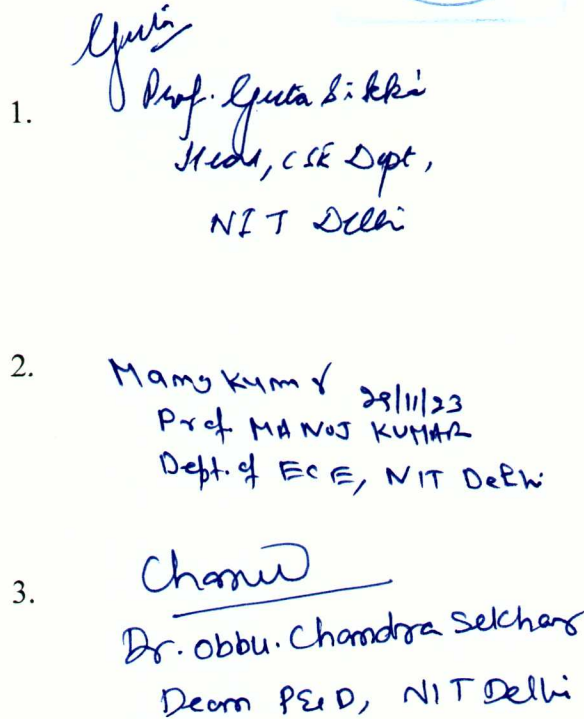 Geeta
1. Prof. Geeta Sikka
Head, CSE Dept,
NIT Delhi
2. Manoj Kumar 29/11/23
Prof MANOJ KUMAR
Dept. of ECE, NIT Delhi
3.
Dr. Obbu. Chandra Sekhar
Dean P&D, NIT Delhi